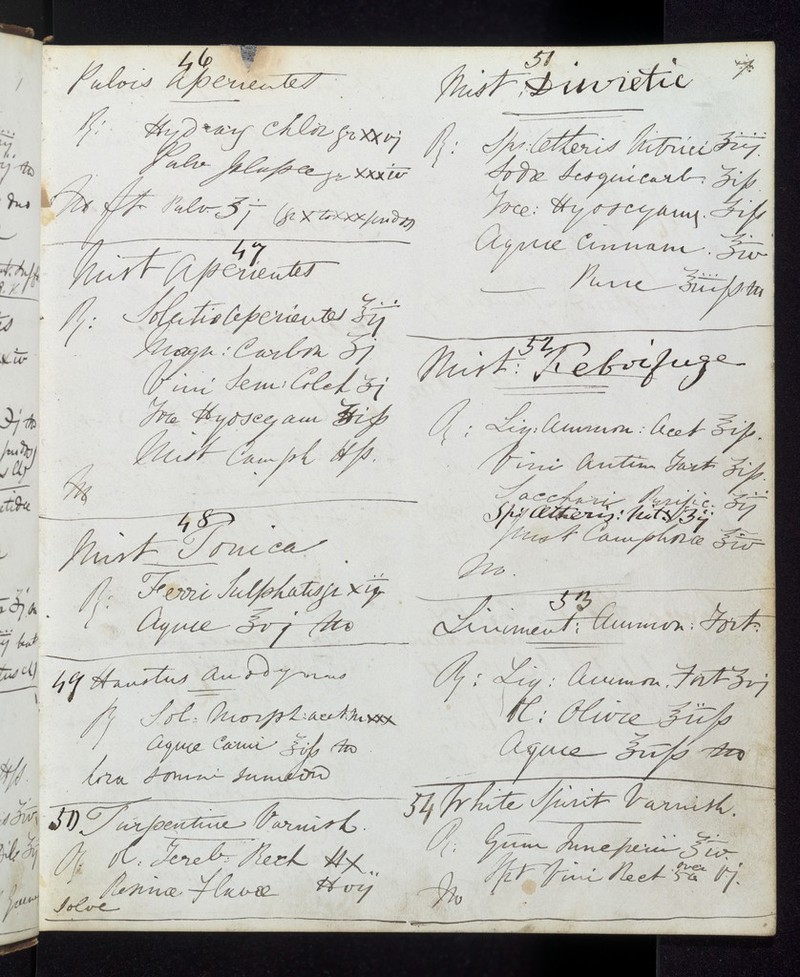 46
Pulvis Aperientes
R: Hydrarg Chlor gr xxvj
Pulv Jalapæ gr xxxiv
M ft Pulv ʒj (gr x to xxx pro dos)
47
Mist Aperientes
R: Solutio Aperientes ℥ij
Magn: Carbon ʒj
Vini Sem: Colch ʒj
Tre Hyoscyam ʒiß
Mist Camph ℔ß.
M
48
Mist Tonica
R: Ferri Sulphatis gr
Aquæ ℥vj M
49 Haustus Anodynus
R Sol: Morph: acet m xxx
Aquæ Carui ℥iß M
hora somni sumend
50 Turpentine Varnish.
R Ol. Tereb: Rect ℔x
Resinæ Flavæ ℔vij
Solve
51
Mist: Diuretic
R: Sps: Ætheris Nitrici ʒiij.
Sodæ Sesquicarb: ʒiß
Tre: Hyoscyam. ʒiß
Aquæ Cinnam. ℥iv
— Puræ ℥iijß M
52
Mist: Febrifuge
R: Liq: Ammon: Acet ℥iß.
Vini Antim Tart ʒiß.
Sacchari Purific: ʒij
Sp: Ætheris: Nit: ʒij
Mist Camphoræ ℥iv
M.
53
Liniment: Ammon: Fort:
R: Liq: Ammon. Fort ʒvj
Ol: Olivæ ℥iiß
Aquæ ℥iiß M
54 White Spirit Varnish.
R: Gum Juneperii ℥iv.
Spt Vini Rect over 5a vj.
M